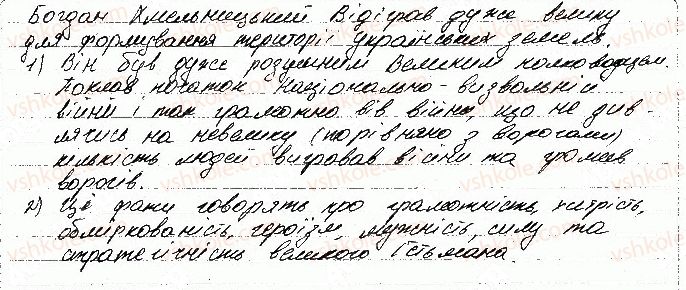 Богдан Хмельницький Відіграв дуже велику
для формування території українських земель.
1) Він був дуже розумним Великим полководцем.
Поклав початок Національно-визвольній
війни і так грамотно вів війну, що не див-
лячись на невелику (порівняно з ворогами)
кількість людей вигравав війни та громив
ворогів.
2) Ці фрази говорять про грамотність, хитрість,
обміркованість, героїзм, мужність, силу та
стратегічність великого Гетьмана.
vshkole.com